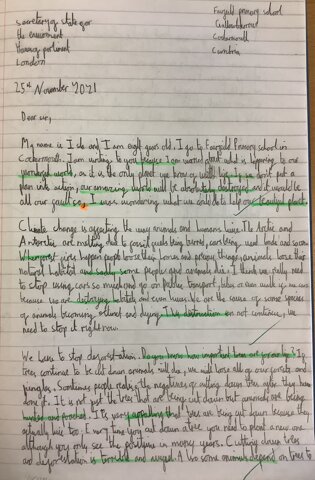 Fairfield primary school
Secretary of state for
the environment
Cockermouth
Houses of parliament
Cumbria
London
25th November 2021
Dear sir,
My name is I do and I am eight years old. I go to Fairfield Primary school in
Cockermouth. I am writing to you because I am worried about what is happening to our
wonderful world, as it is the only planet we know of with life, if we don't put a
plan into action, our amazing world will be absolutely destroyed and it would be
all our fault so, I was wondering what we could do to help our beautiful planet.
Climate change is affecting the way animals and humans live. The Arctic and
Antarctic are melting due to fossil fuels being burned, cars being used loads and
Whenever fires happen people loose their homes and precious things, animals loose their
natural habitat and sadly some people and animals die. I think we really need
to stop using cars so much and go on public transport, bikes or even walk if we can
because we are destroying habitats and even lives. We are the cause of some species
of animals becoming extinct and dying. This destruction can not continue, we
need to stop it right now.
We have to stop deforestation. Do you know how important trees are for our lives? If
trees continue to be cut down animals will die, we will lose all of our forests and
jungles. Sometimes people realise the negatives of cutting down trees after they have
done it. It is not just the trees that are being cut down but animals are being
injured and
It is very appalling that trees are being cut down because they
actually live too, every time you cut down a tree you need to plant a new one
although you only see the positives in many years. Cutting down trees
and deforestation is terrible and
Also some animals depend on trees to